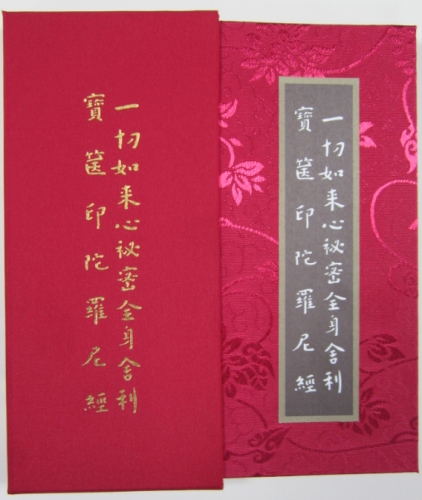 一切如来心祕密全身舍利
寶篋印陀羅尼經
一切如来心祕密全身舍利
寶篋印陀羅尼經